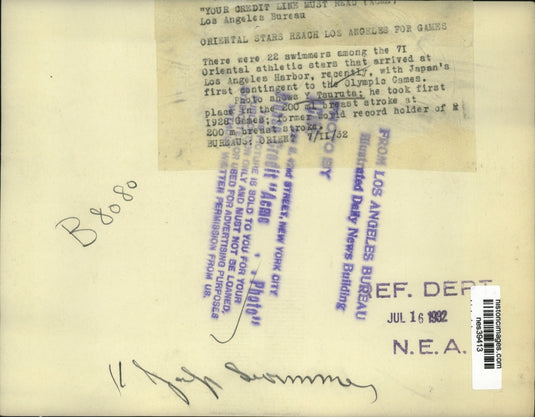 "YOUR CREDIT LINE MUST READ (ACME)
Los Angeles Bureau
ORIENTAL STARS REACH LOS ANGELES FOR GAMES
There were 22 swimmers among the 71
Oriental athletic stars that arrived at
Los Angeles Harbor, recently, with Japan's
first contingent to the Olympic Games.
Photo shows Y Tsuruta; he took first
place in the 200 breast stroke at
1928 Games; former world record holder of
200 m breast stroke.
BUREAUS: ORIEN 7/11/32
B8080
FROM LOS ANGELES BUREAU
Illustrated Daily News Building
PHOTO BY
42nd STREET, NEW YORK CITY
Credit "Acme Photo"
PICTURE IS SOLD TO YOU FOR YOUR
ONLY AND MUST NOT BE LOANED,
OR USED FOR ADVERTISING PURPOSES
WRITTEN PERMISSION FROM US.
REF. DEPT.
JUL 16 1932
N.E.A.
historicimages.com
nes39413
Jap Swimmer